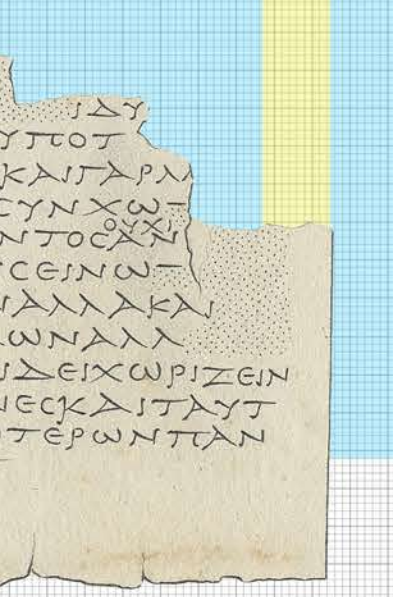 ΙΔΥ
ΥΠΟΤ
ΚΑΙΓΑΡΜ
ϹΥΝΧΩ–
ΟΥΧΙ
ΝΤΟϹΑΝ
ϹΕΙΝΩ–
ΑΛΛΑΚΑΙ
ΩΝΑΛΛ
ΙΔΕΙΧΩΡΙΖΕΙΝ
ΙΕϹΚΑΙΤΑΥΤ
ΟΤΕΡΩΝΠΑΝ